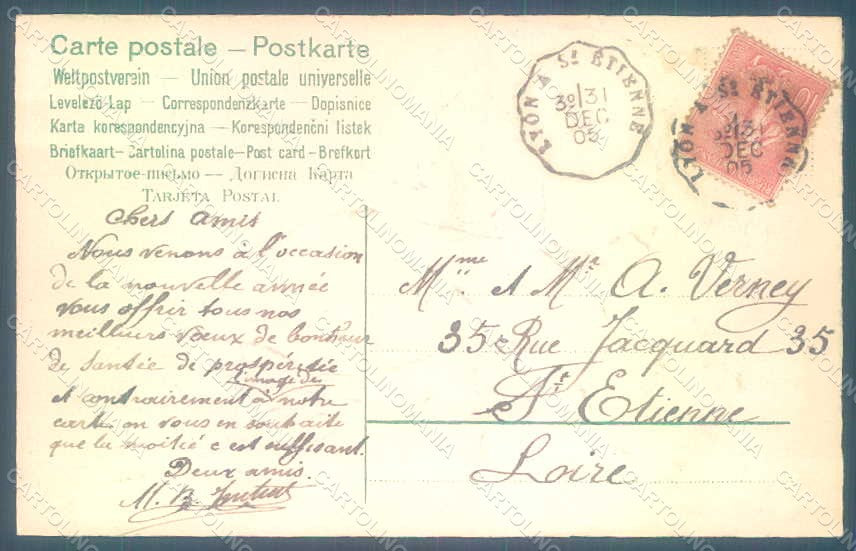 Carte postale — Postkarte
Weltpostverein — Union postale universelle
Levelező-Lap — Correspondenzkarte — Dopisnice
Karta korespondencyjna — Korespondenční listek
Briefkaart — Cartolina postale — Post card — Brefkort
Открытое письмо — Дописна Карта
Tarjeta Postal
LYON A St ETIENNE
3º 31
DEC
05
LYON A St ETIENNE
3º 31
DEC
05
10
Chers amis
Nous venons à l'occasion
de la nouvelle année
vous offrir tous nos
meilleurs vœux de bonheur
de santée de prospéritée
l'image de
et contrairement à notre
carte on vous en souhaite
que la moitié c est suffisant.
Deux amis.
M. B.
Mme et Mr A. Verney
35 Rue Jacquard 35
St Etienne
Loire
CARTOLINOMANIA